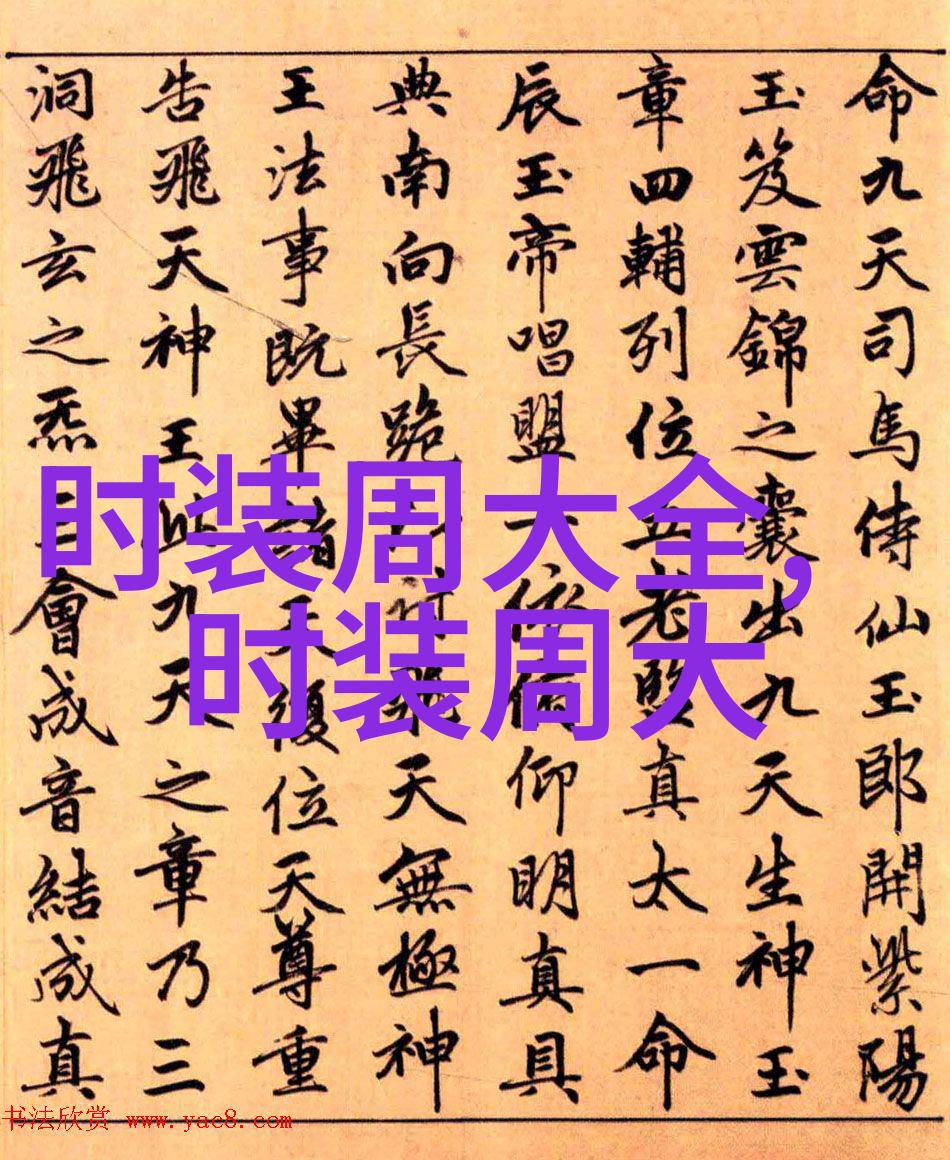 命九天司馬侍仙玉郎開紫陽
玉笈雲錦之囊出九天生神玉
章四輔列位五老監真太一命
辰玉帝唱盟一依俯仰明真具
典南向長跪 天無極神
王法事既畢諸天復位天尊重
告飛天神王此九天之章乃三
洞飛玄之炁三會成音結成真
时装周大全,
时装周大
书法欣赏 www.yac8.com